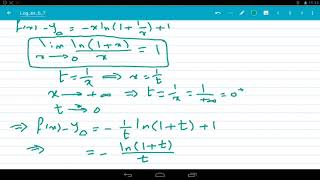 Log_ex_6_7
f(x) - y₀ = -x ln(1 + 1/x) + 1
lim x→0 ln(1+x)/x = 1
t = 1/x ⟺ x = 1/t
x → +∞ ⇒ t = 1/x = 1/+∞ = 0⁺
t → 0
⇒ f(x) - y₀ = - 1/t ln(1+t) + 1
⇒ = - ln(1+t)/t